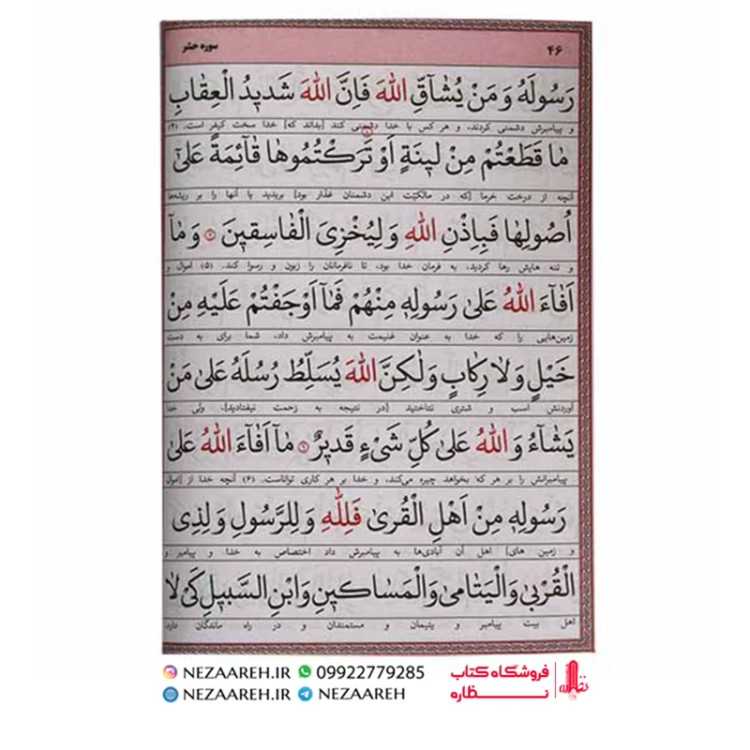 ۴۶ سوره حشر
رَسُولَهُ وَ مَنْ يُشٰآقِّ اللّٰهَ فَاِنَّ اللّٰهَ شَدٖيدُ الْعِقٰابِ
و پیامبرش دشمنی کردند، و هر کس با خدا دشمنی کند [بداند که] خدا سخت کیفر است. (۴)
مٰا قَطَعْتُمْ مِنْ لٖينَةٍ اَوْ تَرَكْتُمُوهٰا قٰآئِمَةً عَلىٰٓ
آنچه از درخت خرما [که در مالکیّت این دشمنان غدّار بود] بریدید یا آنها را بر ریشه‌ها
اُصُولِهٰا فَبِاِذْنِ اللّٰهِ وَ لِيُخْزِىَ الْفٰاسِقٖينَ ۵ وَ مٰآ
و تنه هایش رها کردید، به فرمان خدا بود، تا نافرمانان را زبون و رسوا کند. (۵) اموال و
اَفٰآءَ اللّٰهُ عَلىٰ رَسُولِهٖ مِنْهُمْ فَمٰآ اَوْجَفْتُمْ عَلَيْهِ مِنْ
زمین‌هایی را که خدا به عنوان غنیمت به پیامبرش داد، شما برای به دست
خَيْلٍ وَ لٰا رِكٰابٍ وَ لٰكِنَّ اللّٰهَ يُسَلِّطُ رُسُلَهُ عَلىٰ مَنْ
آوردنش اسب و شتری نتاختید [در نتیجه به زحمت نیفتادید]، ولی خدا
يَشٰآءُ وَ اللّٰهُ عَلىٰ كُلِّ شَىْءٍ قَدٖيرٌ ۶ مٰآ اَفٰآءَ اللّٰهُ عَلىٰ
پیامبرانش را بر هر که بخواهد چیره می‌کند، و خدا بر هر کاری تواناست. (۶) آنچه خدا از [اموال
رَسُولِهٖ مِنْ اَهْلِ الْقُرىٰ فَلِلّٰهِ وَ لِلرَّسُولِ وَ لِذِى
و زمین های] اهل آن آبادی‌ها به پیامبرش داد اختصاص به خدا و پیامبر و
الْقُرْبىٰ وَ الْيَتٰامىٰ وَ الْمَسٰاكٖينِ وَ ابْنِ السَّبٖيلِ كَىْ لٰا
اهل بیت پیامبر و یتیمان و مستمندان و در راه ماندگان دارد
NEZAAREH.IR 09922779285 فروشگاه کتاب
NEZAAREH.IR NEZAAREH نظاره